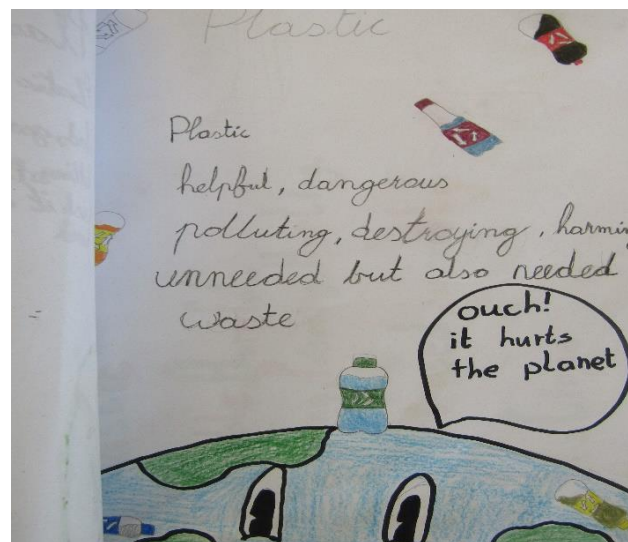 Plastic
Plastic
helpful, dangerous
polluting, destroying, harmin
unneeded but also needed
waste
ouch!
it hurts
the planet